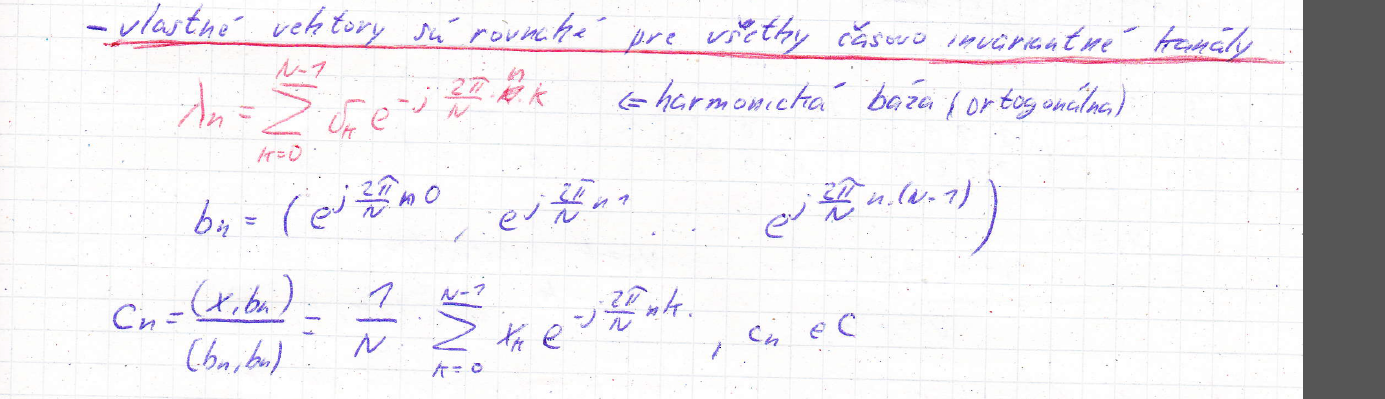 - vlastné vektory sú rovnaké pre všetky časovo invariantné kanály
λn = ∑_{k=0}^{N-1} δk e^{-j 2π/N · n · k} ⇐ harmonická báza (ortogonálna)
bn = ( e^{j 2π/N n 0} , e^{j 2π/N n 1} . . . e^{j 2π/N n.(N-1)} )
cn = (x,bn) / (bn,bn) = 1/N · ∑_{k=0}^{N-1} xk e^{-j 2π/N nk} , cn ∈ C